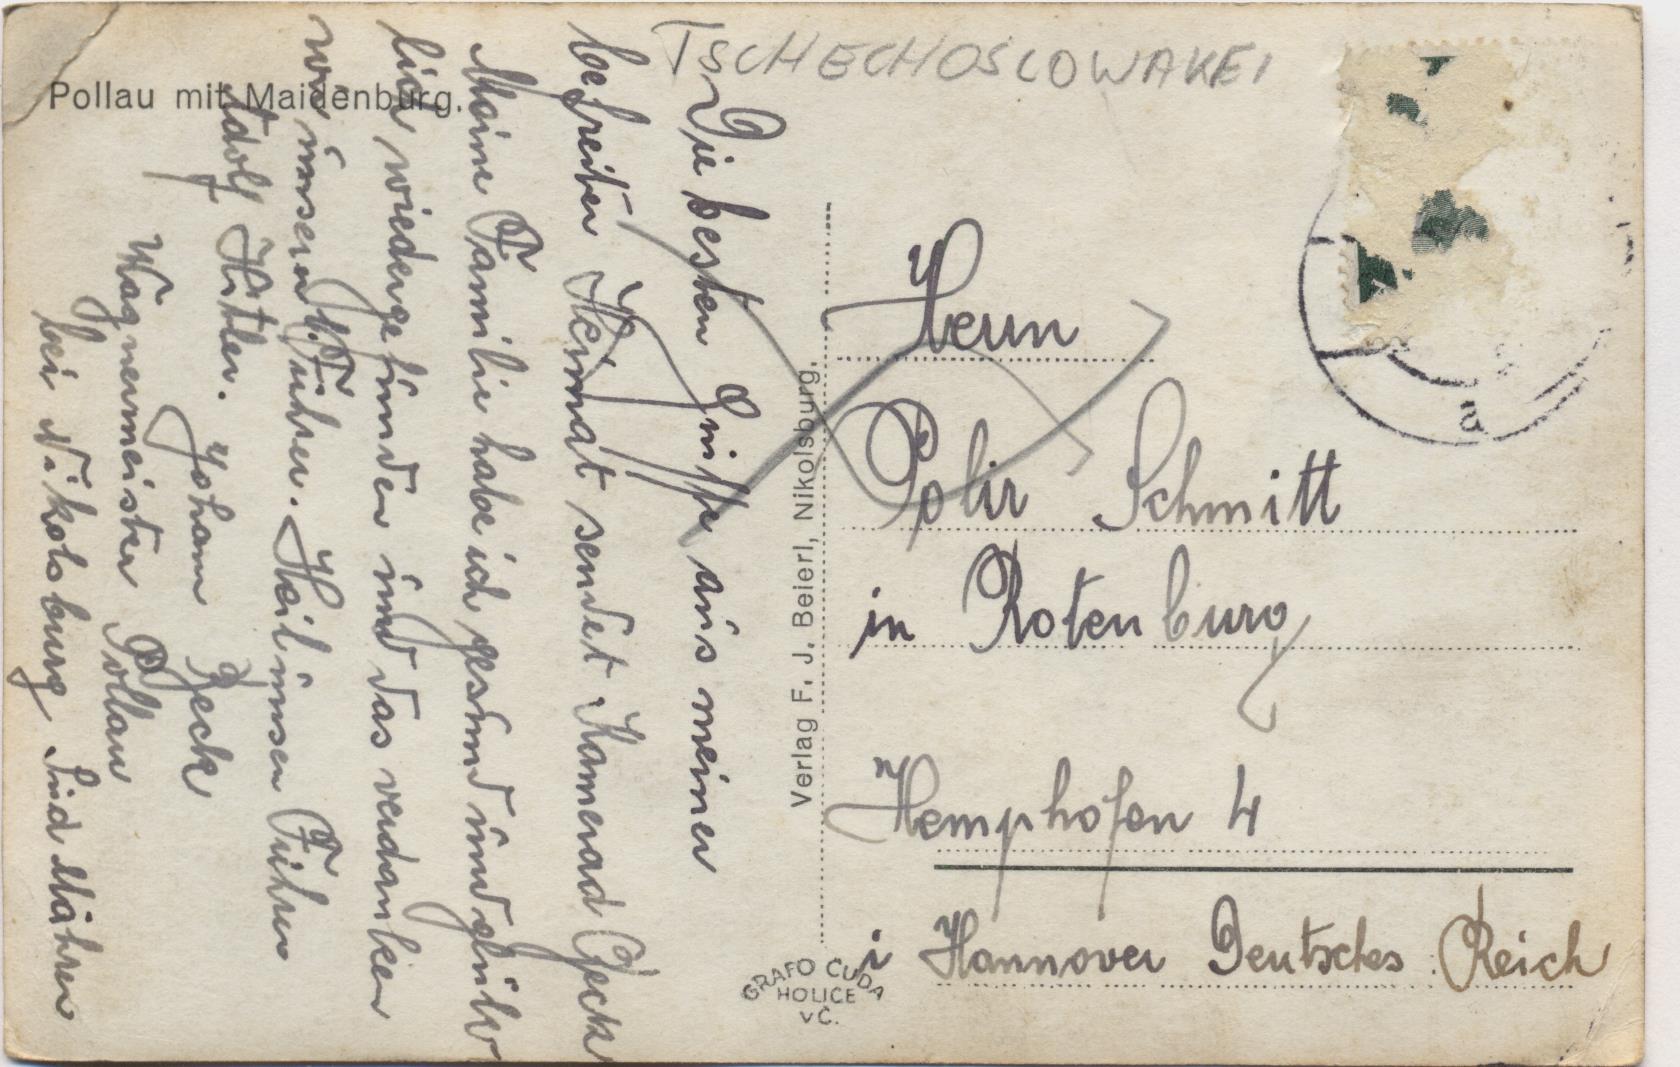 TSCHECHOSLOWAKEI
Pollau mit Maidenburg.
Die besten Grüße aus meiner
befreiten Heimat sendet Kamerad Geck
Meine Familie habe ich gesund und glück
lich wiedergefunden und das verdanken
wir unseren Führer. Heil unsen Führer
Adolf Hitler. Johann Geck
Wagnermeister Pollau
bei Nikolsburg Süd Mähren
Verlag F. J. Beierl, Nikolsburg.
Herrn
Polir Schmitt
in Rotenburg
Hemphöfen 4
i Hannover Deutsches Reich
GRAFO ČUDA
HOLICE
v Č.
a